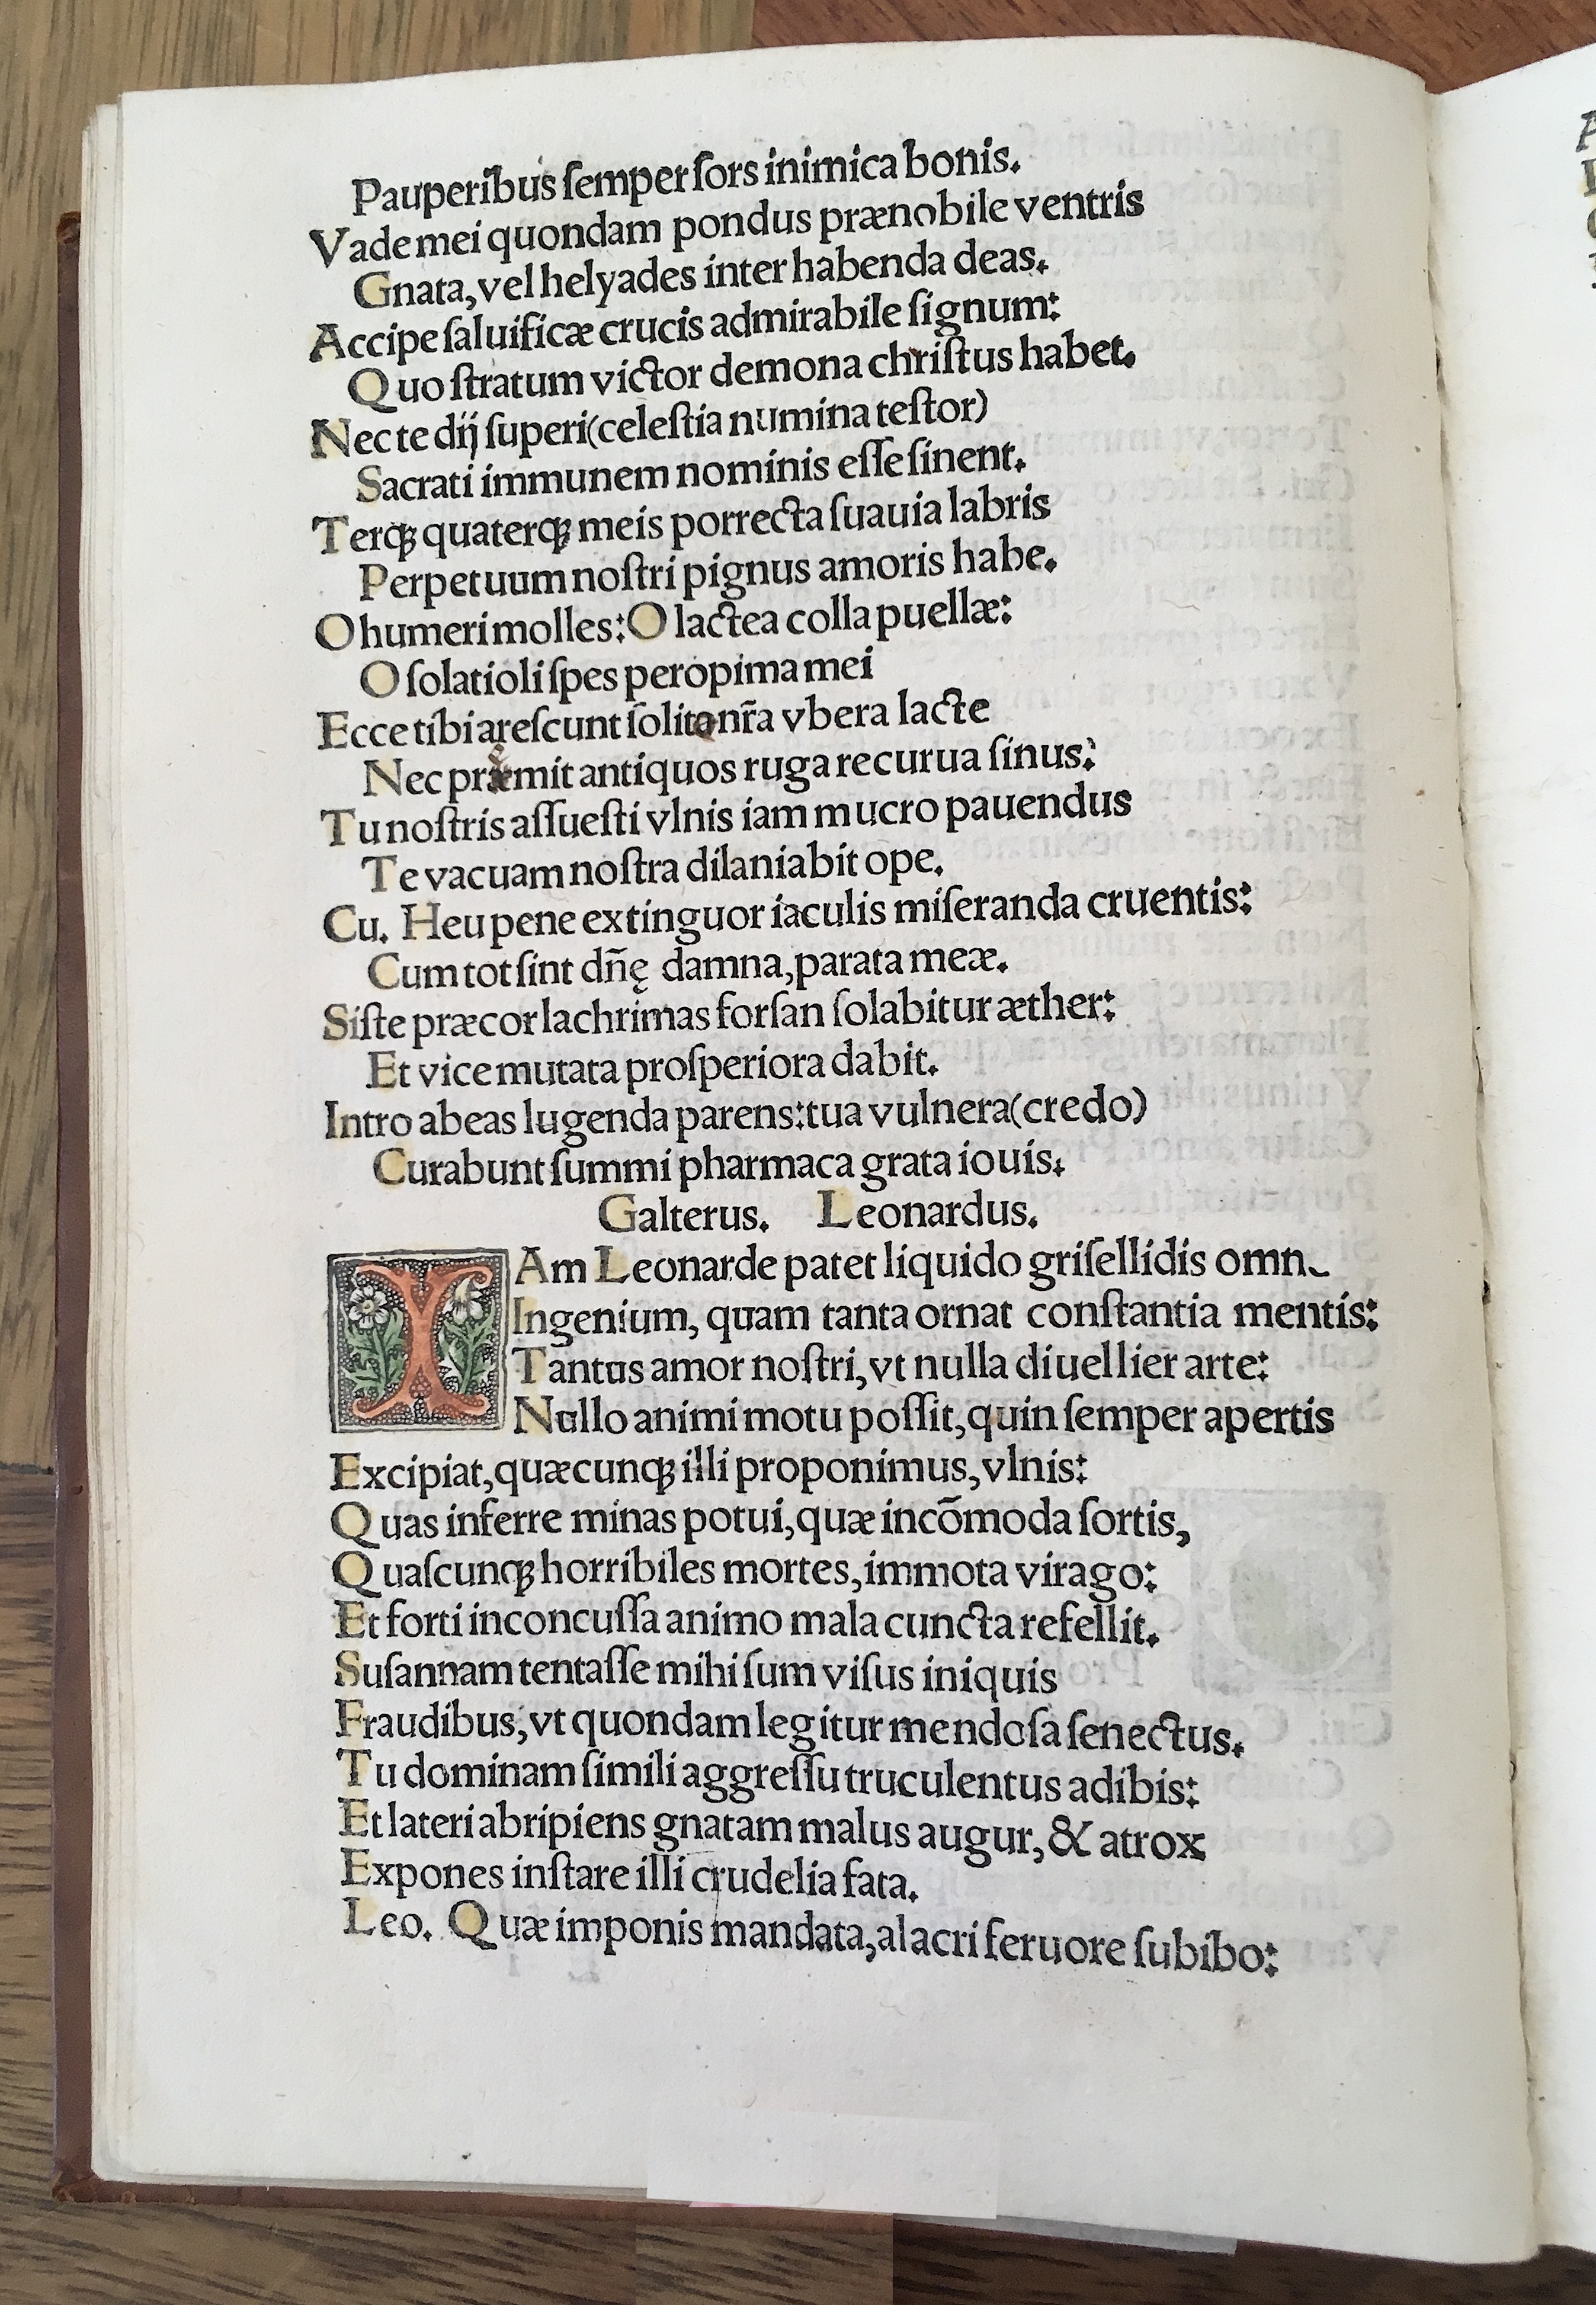 Pauperibus ſemper ſors inimica bonis.
Vade mei quondam pondus prænobile ventris
Gnata, vel helyades inter habenda deas.
Accipe ſaluificæ crucis admirabile ſignum:
Quo ſtratum victor demona chriſtus habet.
Nec te dij ſuperi (celeſtia numina teſtor)
Sacrati immunem nominis eſſe ſinent.
Terqꝫ quaterqꝫ meis porrecta ſuauia labris
Perpetuum noſtri pignus amoris habe.
O humeri molles: O lactea colla puellæ:
O ſolatioli ſpes peropima mei
Ecce tibi areſcunt ſolito nr̃a vbera lacte
Nec præmit antiquos ruga recurua ſinus:
Tu noſtris aſſueſti vlnis iam mucro pauendus
Te vacuam noſtra dilaniabit ope.
Cu. Heu pene extinguor iaculis miſeranda cruentis:
Cum tot ſint dñę damna, parata meæ.
Siſte præcor lachrimas forſan ſolabitur æther:
Et vice mutata proſperiora dabit.
Intro abeas lugenda parens: tua vulnera (credo)
Curabunt ſummi pharmaca grata iouis.
Galterus. Leonardus.
IAm Leonarde patet liquido griſellidis omne
Ingenium, quam tanta ornat conſtantia mentis:
Tantus amor noſtri, vt nulla diuellier arte:
Nullo animi motu poſſit, quin ſemper apertis
Excipiat, quæcunqꝫ illi proponimus, vlnis:
Quas inferre minas potui, quæ incõmoda ſortis,
Quaſcunqꝫ horribiles mortes, immota virago:
Et forti inconcuſſa animo mala cuncta refellit.
Suſannam tentaſſe mihi ſum viſus iniquis
Fraudibus, vt quondam legitur mendoſa ſenectus.
Tu dominam ſimili aggreſſu truculentus adibis:
Et lateri abripiens gnatam malus augur, & atrox
Expones inſtare illi crudelia fata.
Leo. Quæ imponis mandata, alacri feruore ſubibo: